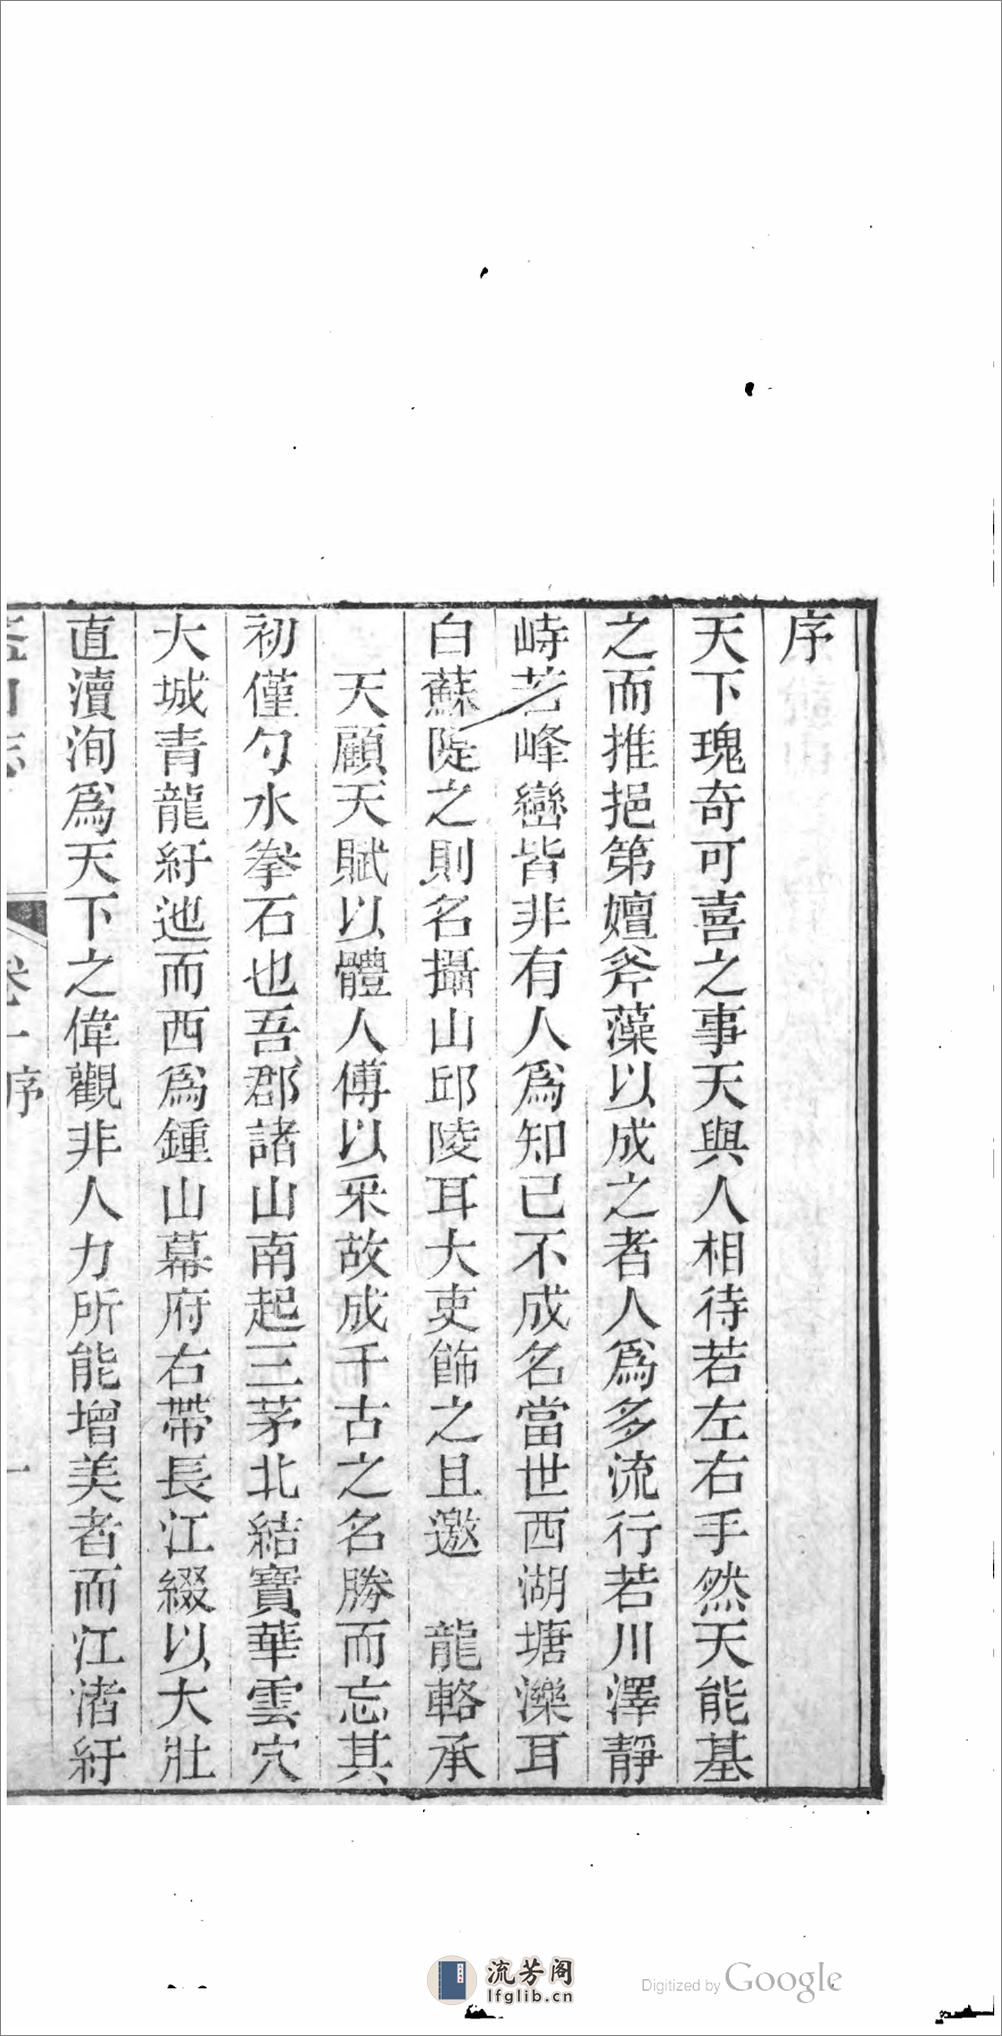 序
天下瑰奇可喜之事天與人相待若左右手然天能基
之而推挹第嬗斧藻以成之者人爲多流行若川澤靜
峙若峰巒皆非有人爲知已不成名當世西湖塘濼耳
白蘇隄之則名攝山邱陵耳大吏飾之且邀　龍輅承
天顧天賦以體人傅以采故成千古之名勝而忘其
初僅勺水拳石也吾郡諸山南起三茅北結寶華雲穴
大城青龍紆迆而西爲鍾山幕府右帶長江綴以大壯
直瀆洵爲天下之偉觀非人力所能增美者而江渚紆
山志
卷一序
一
流芳阁
lfglib.cn
Digitized by Google